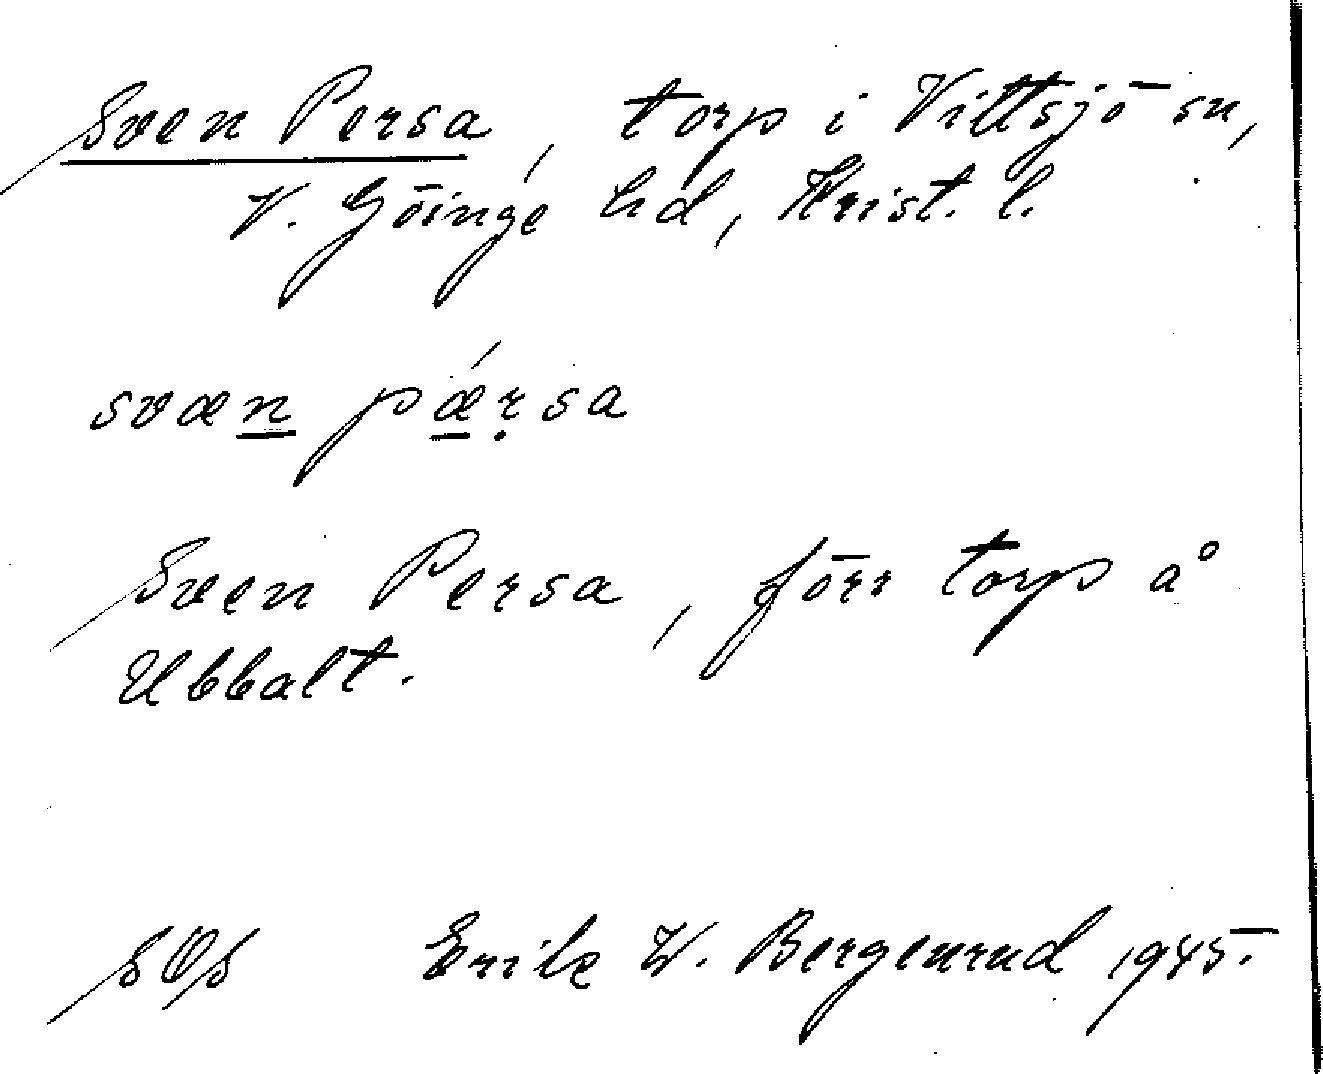 Sven Persa, torp i Vittsjö sn,
V. Göinge hd, Krist. l.
svæn pǽrsa
Sven Persa, förr torp å
Ubbalt.
SOS Erik W. Bergenrud 1945.